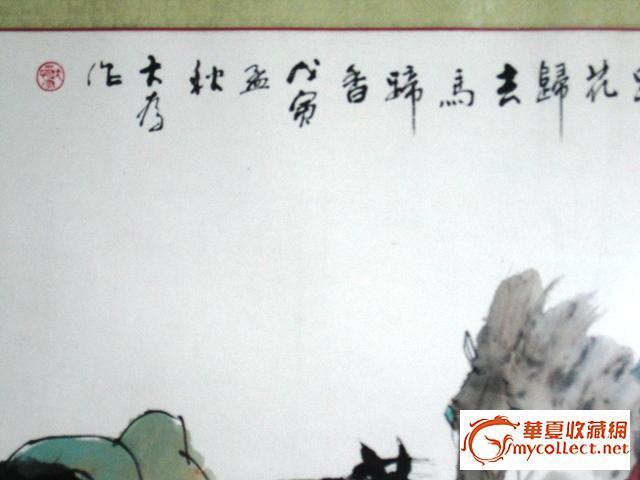 花歸去馬蹄香戊寅孟秋大為作
華夏收藏網
mycollect.com